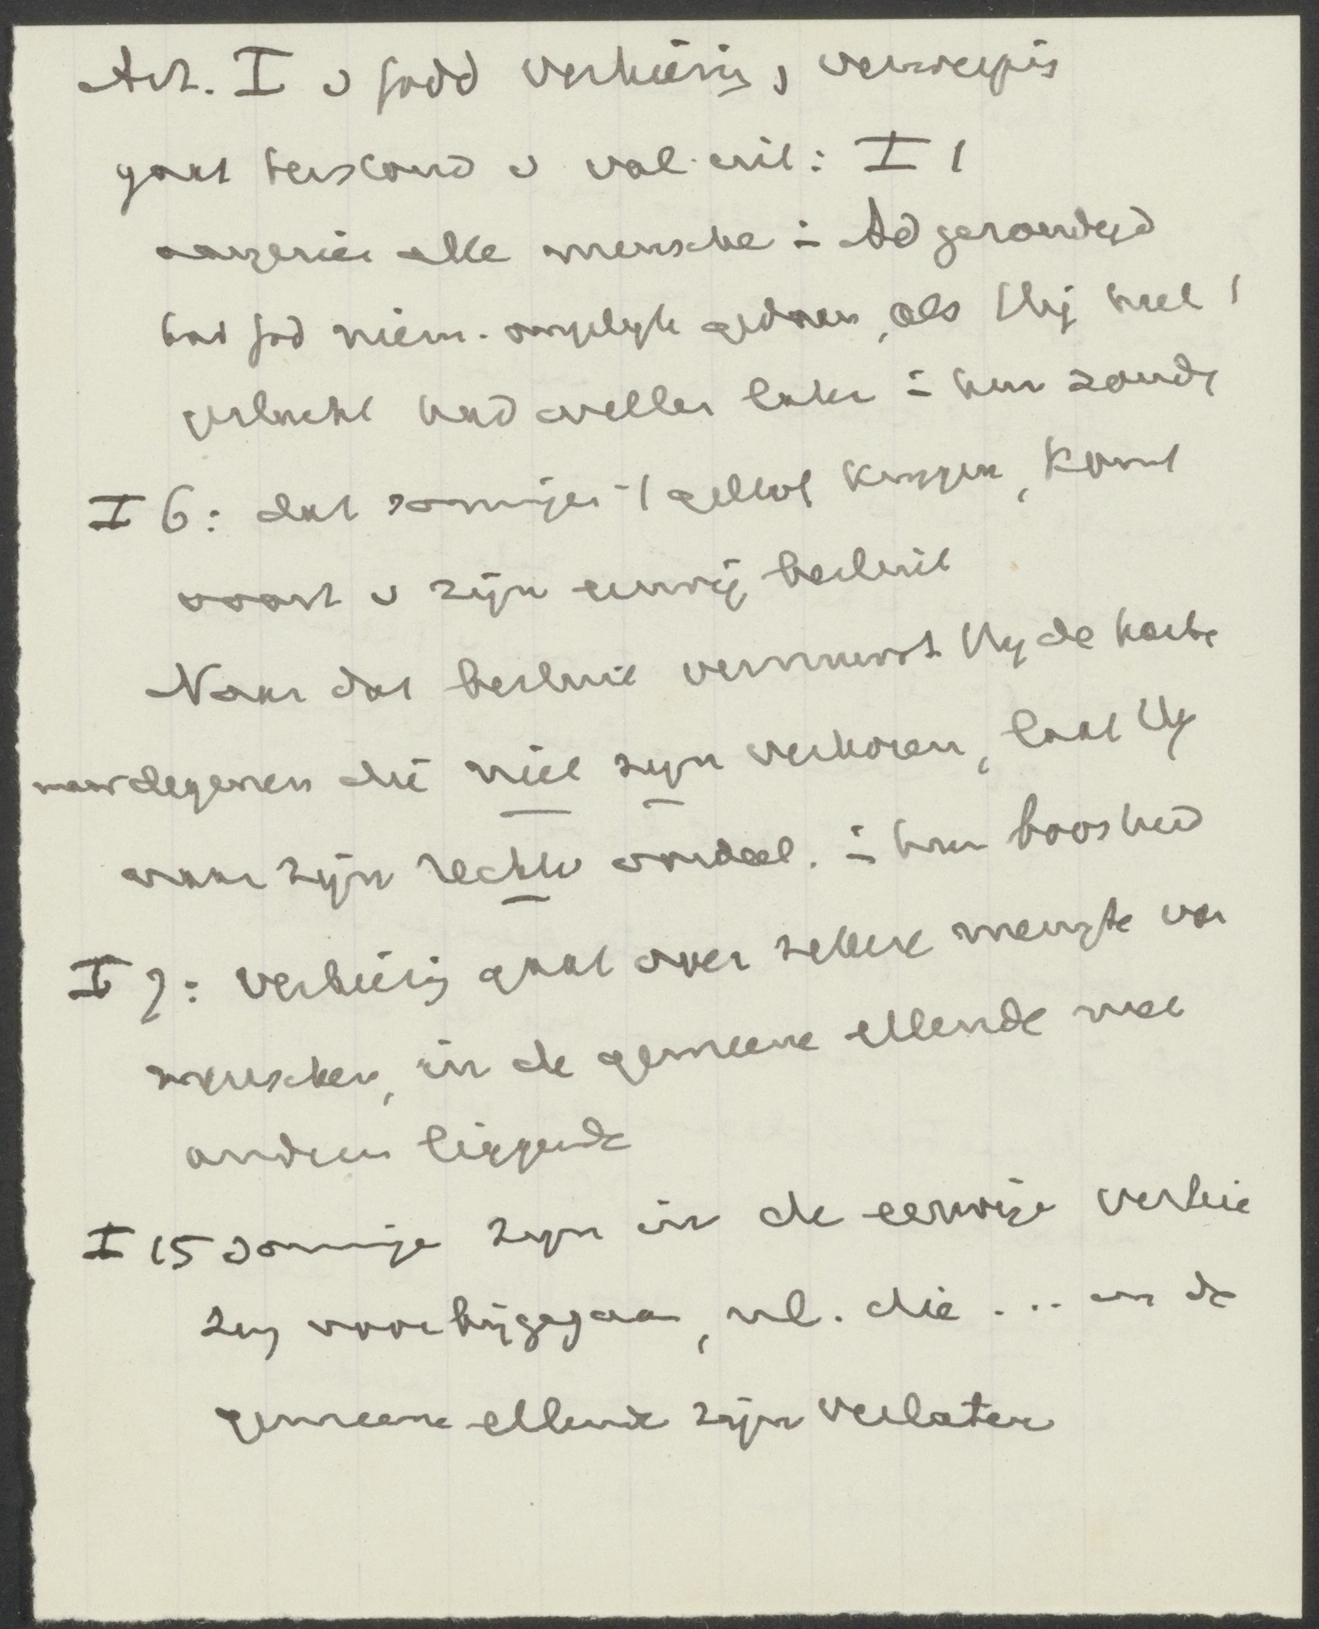 Art. I v godd verkiezing, verwerping
gaat terstond v val uit: I 1
aangezien alle mensche in Ad gezondigd
had God niem. ongelijk gedaan, als Hij heel 't
geslacht had willen laten in hun zonde
I 6: dat sommigen 't geloof krijgen, komt
voort v zijn eeuwig besluit
Naar dat besluit vermurwt Hij de harte
maar degenen die niet zijn verkoren, laat Hij
naar zijn rechtv oordeel. in hun boosheid
I 7: verkiezing gaat over zekere menigte van
menschen, in de gemeene ellende met
anderen liggende
I 15 sommige zijn in de eeuwige verkie
zing voorbijgegaan, nl. die ... in de
gemeene ellende zijn verlaten